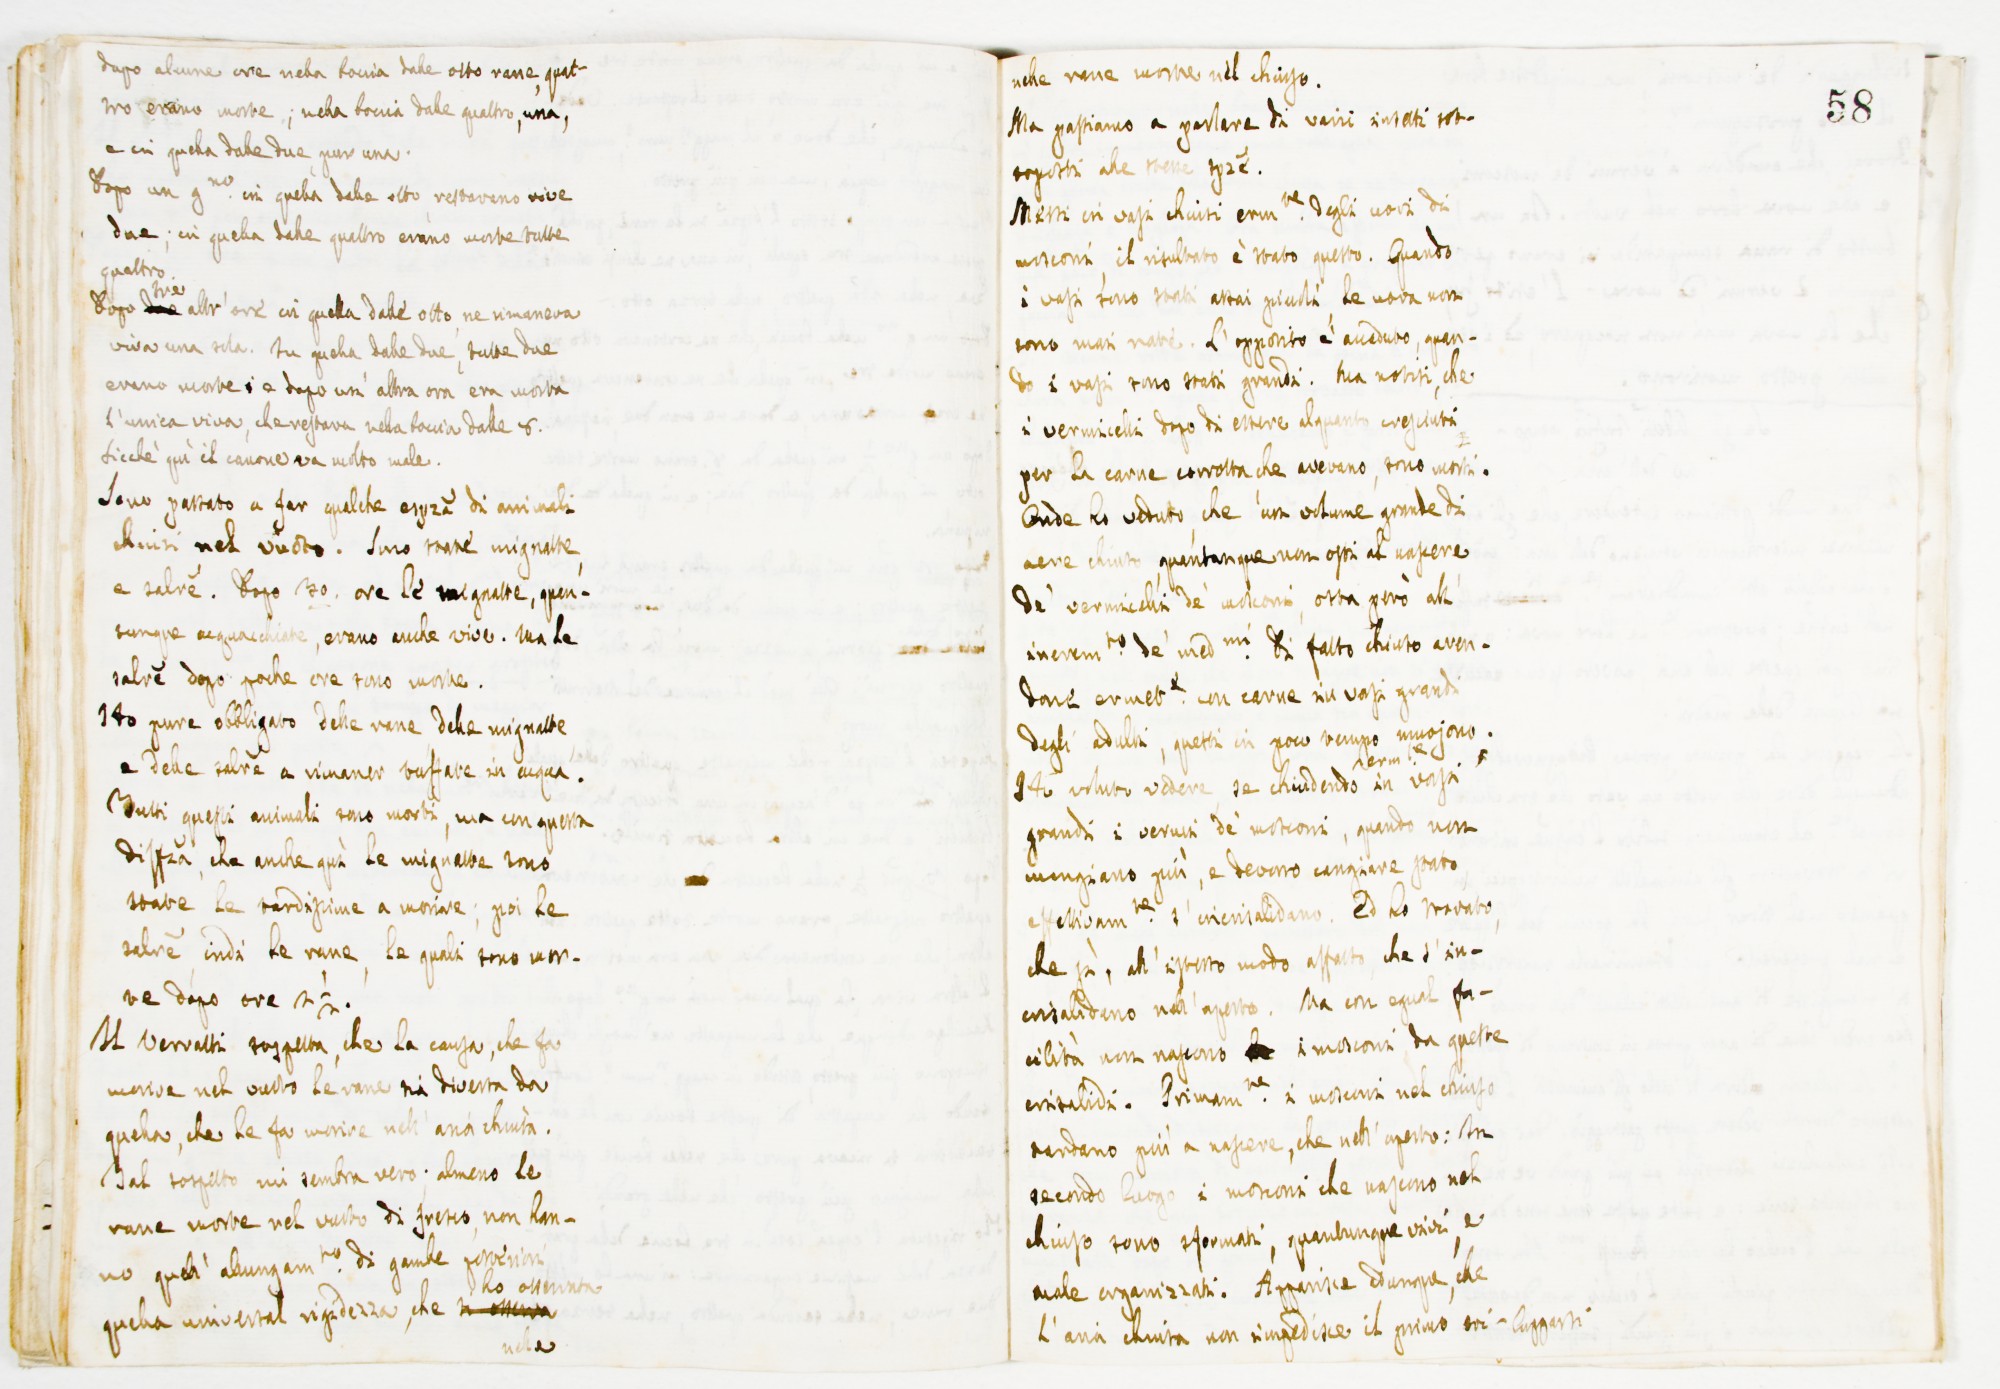 dopo alcune ore nella boccia dalle otto rane, quat-
tro erano morte; nella boccia dalle quattro, una,
e in quella dalle due pur una.
Dopo un g.no in quella dalle otto restavano vive
due; in quella dalle quattro erano morte tutte
quattro.
tre
Dopo due altr' ore in quella dalle otto ne rimaneva
viva una sola. In quella dalle due, tutte due
erano morte; e dopo un' altra ora era morta
l'unica viva, che restava nella boccia dalle 8.
Sicchè quì il canone va molto male.
Sono passato a far qualche espza di animali
chiusi nel vuoto. Sono state mignatte,
e salre. Dopo 30. ore le mignatte, quan-
tunque acquacchiate, erano anche vive. Ma le
salre dopo poche ore sono morte.
Ho pure obbligato delle rane delle mignatte
e delle salre a rimaner tuffate in acqua.
Tutti questi animali sono morti, ma con questa
diffza, che anche quì le mignatte sono
state le tardissime a morire; poi le
salre, indi le rane, le quali sono mor-
te dopo ore 2 1/2.
Il Vervatti sospetta, che la causa, che fa
morire nel vuoto le rane sia diversa da
quella, che le fa morire nell' aria chiusa.
Tal sospetto mi sembra vero; almeno le
rane morte nel vuoto di fresco, non han-
no quell' allungam.to di gambe posteriori
ho osservata
quella universal rigidezza, che si osserva
nelle
58
nelle rane morte nel chiuso.
Ma passiamo a parlare di varii insetti sot-
toposti alle stesse spze.
Messi in vasi chiusi erm.te degli uovi di
mosconi, il risultato è stato questo. Quando
i vasi sono stati assai piccoli, le uova non
sono mai nate. L' opposito è accaduto, quan-
do i vasi sono stati grandi. Ma notisi, che
i vermicelli dopo di essere alquanto cresciuti
per la carne corrotta che avevano, sono morti.
Onde ho veduto, che un volume grande di
aere chiuso, quantunque non osti al nascere
de' vermicelli de' mosconi, osta però all'
increm.to de' med.mi. Di fatto chiuso aven-
done ermet.e con carne in vasi grandi
degli adulti, questi in poco tempo muojono.
erm.te
Ho voluto vedere, se chiudendo in vasi
grandi i vermi de' mosconi, quando non
mangiano più, e devono cangiare stato
effettivam.te s' incrisalidano. Ed ho trovato,
che sì, all' istesso modo affatto, che s' in-
crisalidano nell' aperto. Ma con egual fa-
cilità non nascono i mosconi da queste
crisalidi. Primam.te i mosconi nel chiuso
tardano più a nascere, che nell' aperto: In
secondo luogo i mosconi che nascono nel
chiuso sono sformati, quantunque vivi, e
male organizzati. Apparisce adunque, che
l' aria chiusa non impedisce il primo svi- luppar si